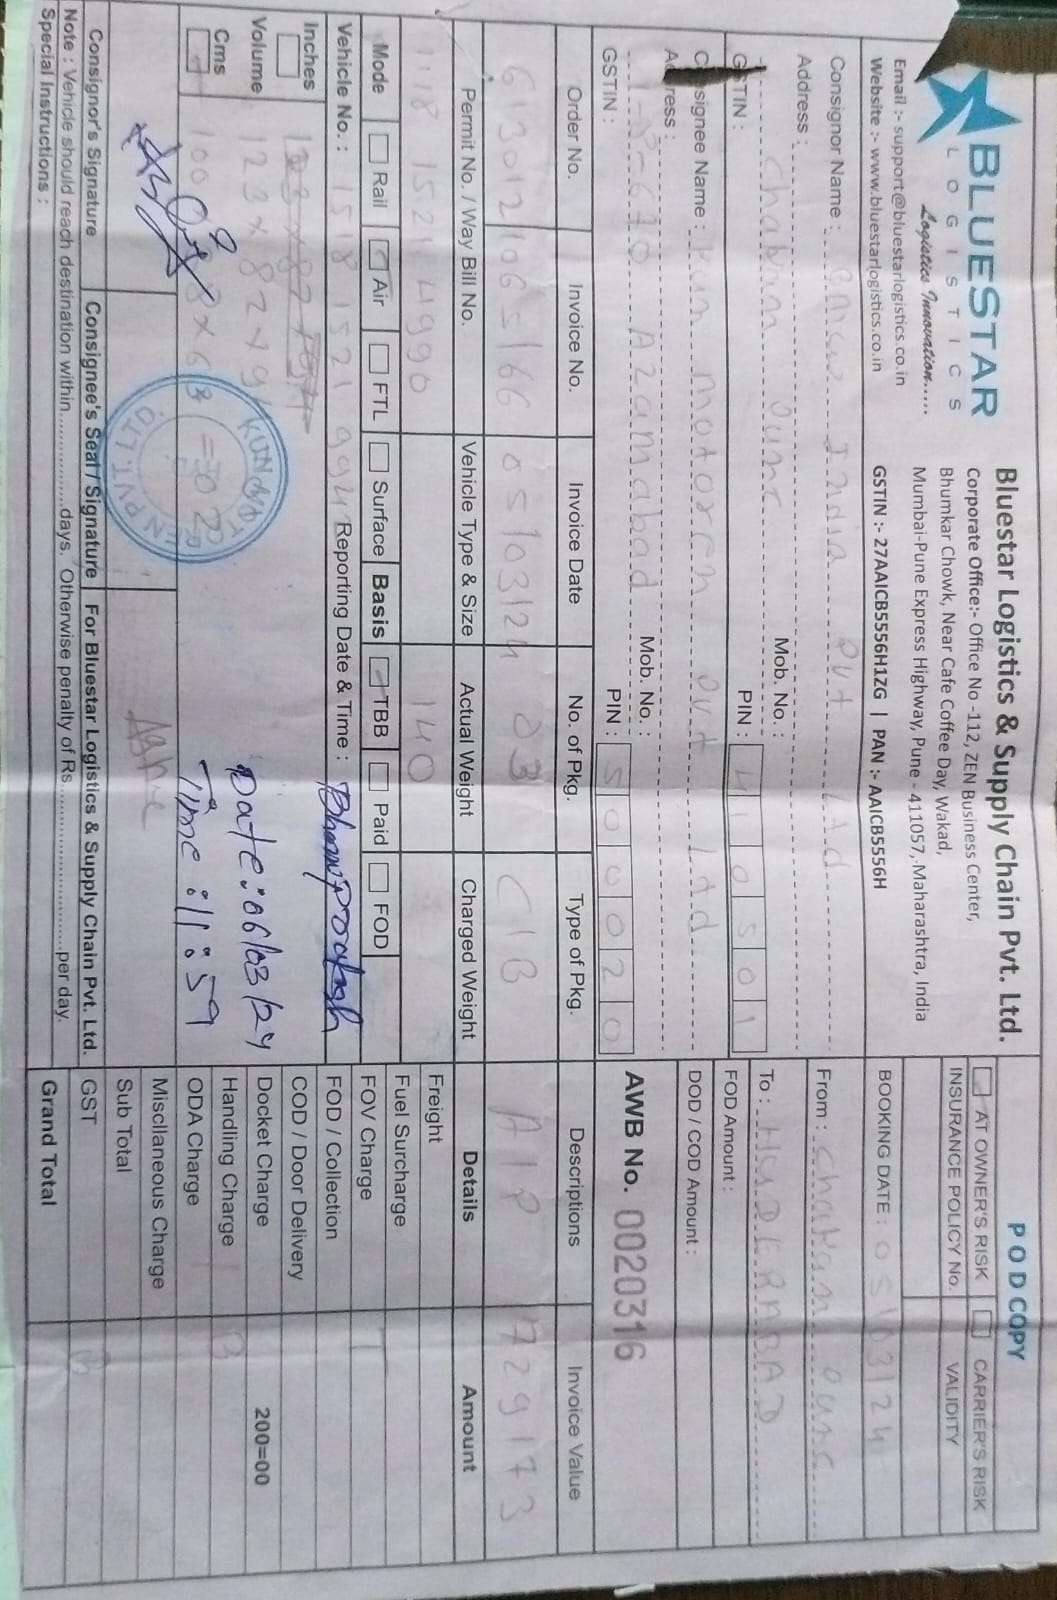 BLUESTAR
LOGISTICS
Logistics Innovation.....
Email :- support@bluestarlogistics.co.in
Website :- www.bluestarlogistics.co.in
Bluestar Logistics & Supply Chain Pvt. Ltd.
Corporate Office:- Office No -112, ZEN Business Center,
Bhumkar Chowk, Near Cafe Coffee Day, Wakad,
Mumbai-Pune Express Highway, Pune - 411057, Maharashtra, India
GSTIN :- 27AAICB5556H1ZG | PAN :- AAICB5556H
POD COPY
AT OWNER'S RISK CARRIER'S RISK
INSURANCE POLICY No. VALIDITY
BOOKING DATE : 05/03/24
Consignor Name : India Pvt Ltd
Address :
Chakan Mob. No. :
GSTIN : PIN : 410501
From : Chakan
To : HYDERABAD
FOD Amount :
DOD / COD Amount :
Consignee Name : Kun motoren Pvt Ltd
Address :
Azamabad Mob. No. :
GSTIN : PIN : 500020
AWB No. 0020316
Order No. Invoice No. Invoice Date No. of Pkg. Type of Pkg. Descriptions Invoice Value
613012/1065/66 05/03/24 03 C/B A/P 729173
Permit No. / Way Bill No. Vehicle Type & Size Actual Weight Charged Weight Details Amount
1521 4990 140
Mode Rail Air FTL Surface Basis TBB Paid FOD
Vehicle No. : 1518 1521 994 Reporting Date & Time :
Inches
Volume 123x82x
Cms
KUN MOTOREN PVT. LTD.
Date: 06/03/24
Time : 11:59
Freight
Fuel Surcharge
FOV Charge
FOD / Collection
COD / Door Delivery
Docket Charge 200=00
Handling Charge
ODA Charge
Miscllaneous Charge
Sub Total
GST
Grand Total
Consignor's Signature Consignee's Seal / Signature For Bluestar Logistics & Supply Chain Pvt. Ltd.
Note : Vehicle should reach destination within.................days. Otherwise penalty of Rs.............................per day.
Special Instructions :